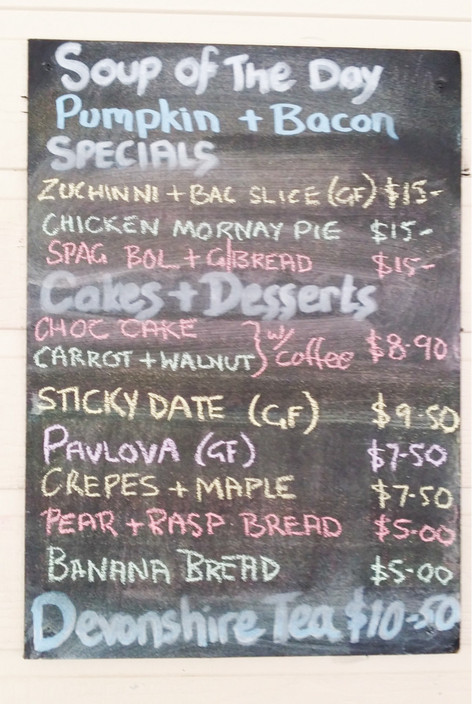 Soup of The Day
Pumpkin + Bacon
SPECIALS
ZUCHINNI + BAC SLICE (GF) $15-
CHICKEN MORNAY PIE $15-
SPAG BOL + G/BREAD $15-
Cakes + Desserts
CHOC CAKE
CARROT + WALNUT } w/ Coffee $8.90
STICKY DATE (GF) $9.50
PAVLOVA (GF) $7.50
CREPES + MAPLE $7.50
PEAR + RASP BREAD $5.00
BANANA BREAD $5.00
Devonshire Tea $10.50